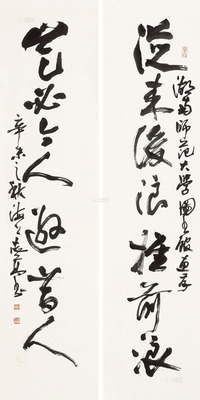 從来後浪推前浪
湖南師范大学圖书館惠存
豈必今人遜昔人
辛未之秋